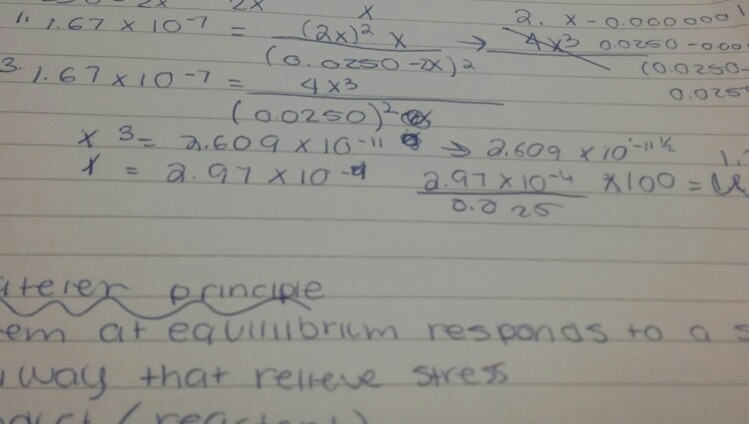 2x x
1. 1.67 x 10-7 = (2x)2 x / (0.0250 - 2x)2 →
2. x - 0.000000
4x3 0.0250 - 0.00
(0.0250-
0.025
3. 1.67 x 10-7 = 4x3 / (0.0250)2
x 3 = 2.609 x 10-11 → 2.609 x 10-11 1/2
x = 2.97 x 10-4 2.97 x 10-4 / 0.025 x 100 =
principle
em at equilibrium responds to a s
way that relieve stress